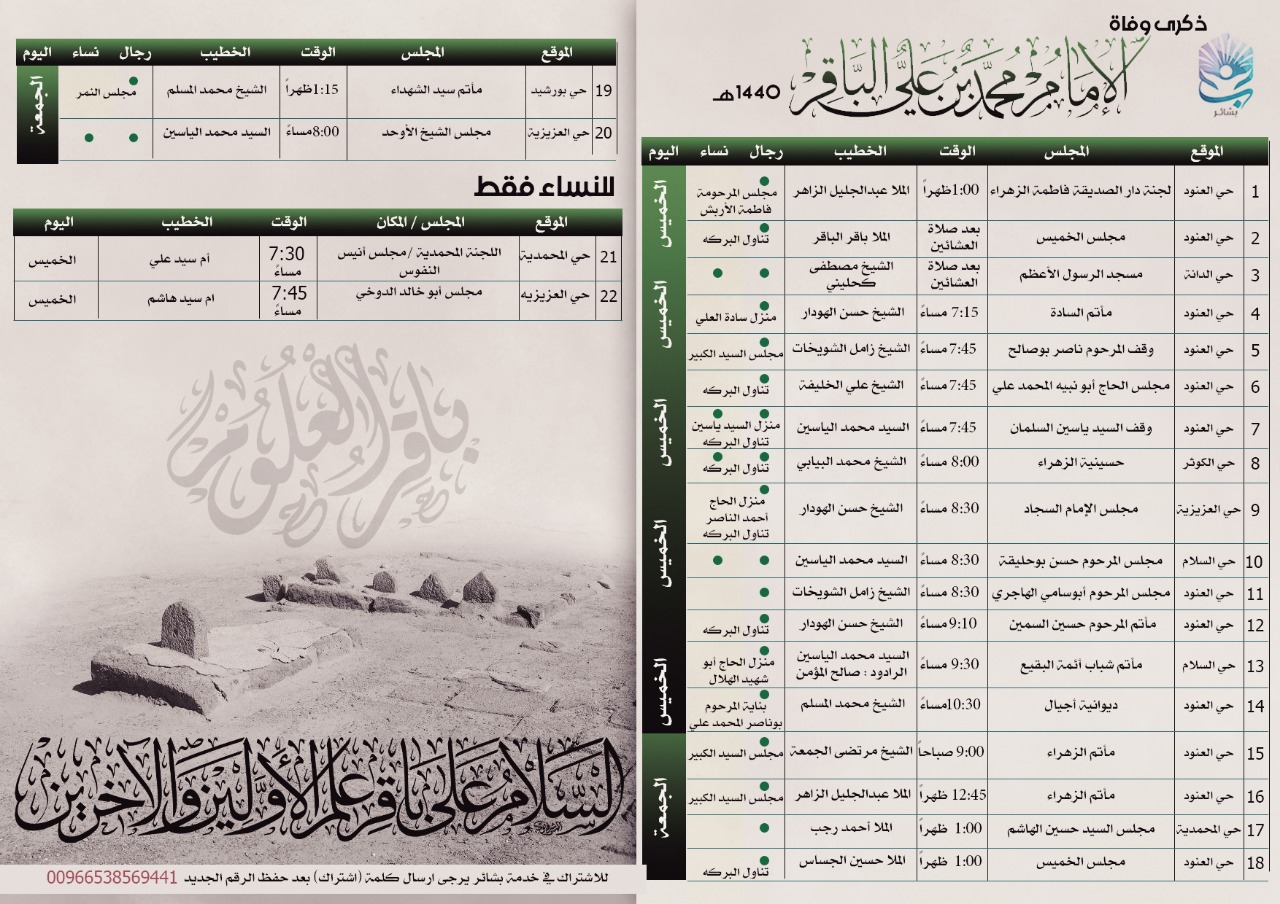 ذكرى وفاة
الإمام محمد بن علي الباقر
1440هـ
بشائر
الموقع المجلس الوقت الخطيب رجال نساء اليوم
الخميس
1 حي العنود لجنة دار الصديقة فاطمة الزهراء 1:00ظهراً الملا عبدالجليل الزاهر مجلس المرحومة فاطمة الأربش
2 حي العنود مجلس الخميس بعد صلاة العشائين الملا باقر الباقر تناول البركه
3 حي الدانة مسجد الرسول الأعظم بعد صلاة العشائين الشيخ مصطفى كحليني
الخميس
4 حي العنود مأتم السادة 7:15 مساءً الشيخ حسن الهودار منزل سادة العلي
5 حي العنود وقف المرحوم ناصر بوصالح 7:45 مساءً الشيخ زامل الشويخات مجلس السيد الكبير
6 حي العنود مجلس الحاج أبو نبيه المحمد علي 7:45مساءً الشيخ علي الخليفة تناول البركه
الخميس
7 حي العنود وقف السيد ياسين السلمان 7:45 مساءً السيد محمد الياسين منزل السيد ياسين تناول البركه
8 حي الكوثر حسينية الزهراء 8:00 مساءً الشيخ محمد البيابي تناول البركه
9 حي العزيزية مجلس الإمام السجاد 8:30 مساءً الشيخ حسن الهودار منزل الحاج أحمد الناصر تناول البركه
الخميس
10 حي السلام مجلس المرحوم حسن بوحليقة 8:30 مساءً السيد محمد الياسين
11 حي العنود مجلس المرحوم أبوسامي الهاجري 8:30 مساءً الشيخ زامل الشويخات
12 حي العنود مأتم المرحوم حسين السمين 9:10مساءً الشيخ حسن الهودار تناول البركه
الخميس
13 حي السلام مأتم شباب أئمة البقيع 9:30 مساءً السيد محمد الياسين الرادود : صالح المؤمن منزل الحاج أبو شهيد الهلال
14 حي العنود ديوانية أجيال 10:30مساءً الشيخ محمد المسلم بناية المرحوم بوناصر المحمد علي
الجمعة
15 حي العنود مأتم الزهراء 9:00 صباحاً الشيخ مرتضى الجمعة مجلس السيد الكبير
16 حي العنود مأتم الزهراء 12:45 ظهراً الملا عبدالجليل الزاهر مجلس السيد الكبير
17 حي المحمدية مجلس السيد حسين الهاشم 1:00 ظهراً الملا أحمد رجب
18 حي العنود مجلس الخميس 1:00 ظهراً الملا حسين الجساس تناول البركه
الموقع المجلس الوقت الخطيب رجال نساء اليوم
الجمعة
19 حي بورشيد مأتم سيد الشهداء 1:15ظهراً الشيخ محمد المسلم مجلس النمر
20 حي العزيزية مجلس الشيخ الأوحد 8:00مساءً السيد محمد الياسين
للنساء فقط
الموقع المجلس / المكان الوقت الخطيب اليوم
21 حي المحمدية اللجنة المحمدية /مجلس أنيس النفوس 7:30 مساءً أم سيد علي الخميس
22 حي العزيزيه مجلس أبو خالد الدوخي 7:45 مساءً ام سيد هاشم الخميس
باقر العلوم
السلام على باقر علم الأولين والآخرين
للاشتراك في خدمة بشائر يرجى ارسال كلمة (اشتراك) بعد حفظ الرقم الجديد 00966538569441